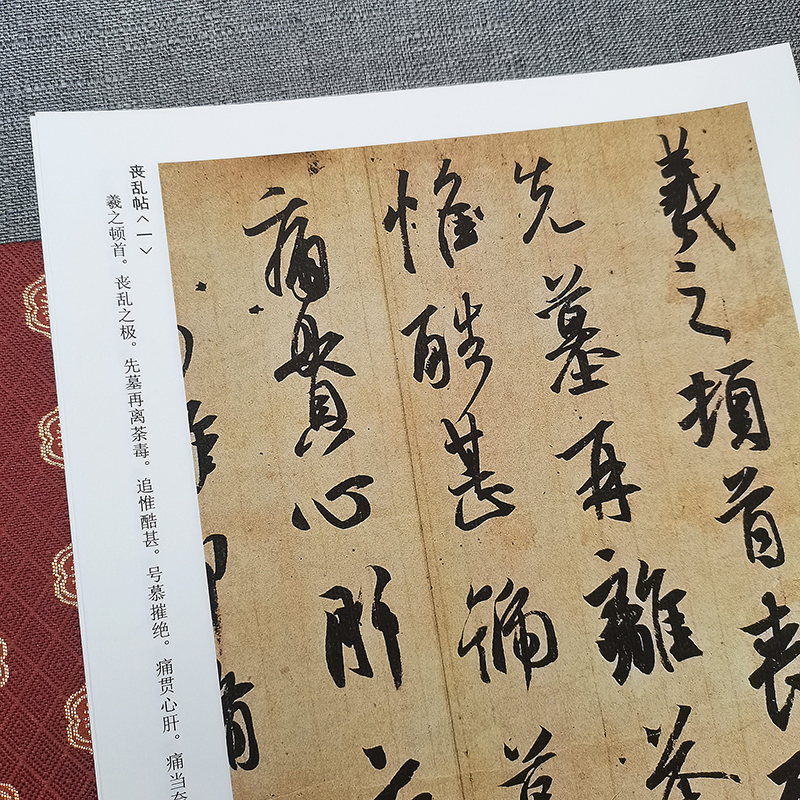 羲之頓首喪
先墓再離荼
惟酷甚號
痛貫心肝
丧乱帖<一>
羲之顿首。丧乱之极。先墓再离荼毒。追惟酷甚。号慕摧绝。痛贯心肝。痛当